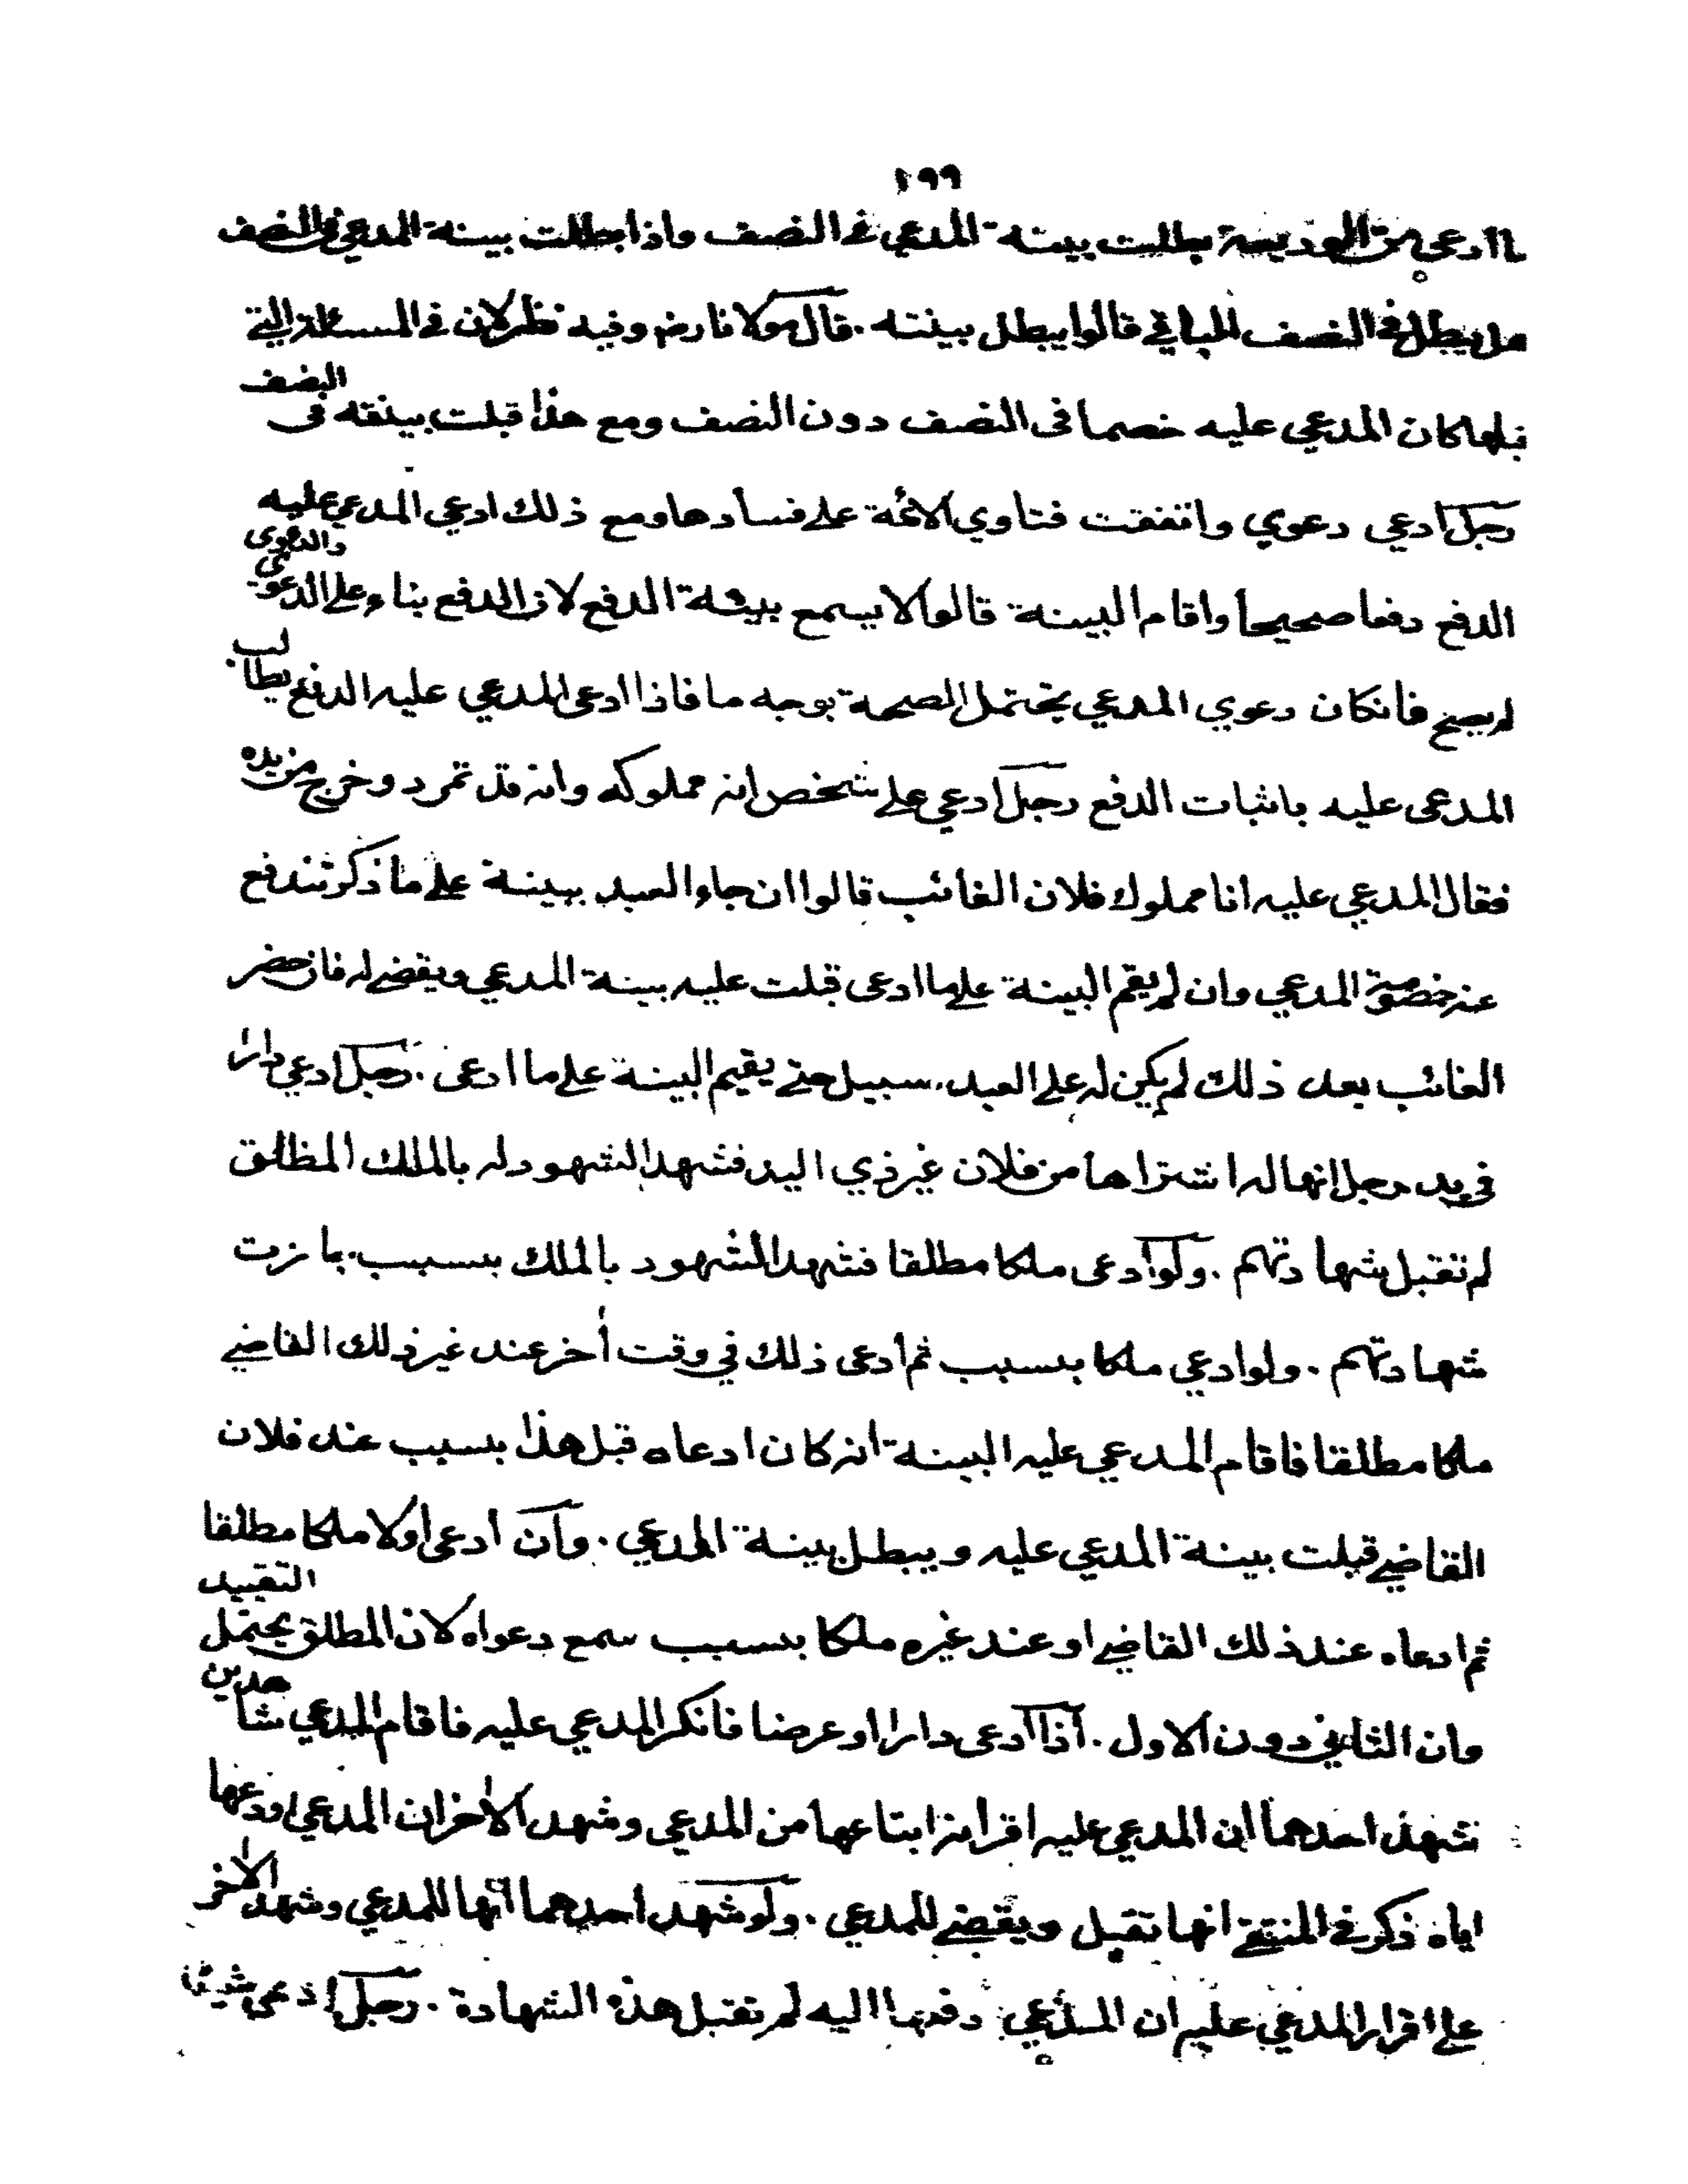 ١٩٩
ما ادعى من الوديعة بطلت بينة المدعي في النصف واذا بطلت بينة المدعي في النصف
هل يبطل في النصف الباقي قالوا يبطل بينته . قال مولانا رضه وفيه نظر لان في المسئلة التي
قبلها كان المدعي عليه خصما في النصف دون النصف ومع هذا قبلت بينته في النصف
رجل ادعي دعوي واتفقت فتاوي الائمة على فسادها ومع ذلك ادعي المدعي عليه
الدفع دفعا صحيحا واقام البينة قالوا لا يسمع بينة الدفع لان الدفع بناء على الدعوى والدعوى
لم يصح فان كان دعوي المدعي يحتمل الصحة بوجه ما فاذا ادعى المدعي عليه الدفع يطالب
المدعى عليه باثبات الدفع رجل ادعي على شخص انه مملوكه وانه قد تمرد وخرج من يده
فقال المدعي عليه انا مملوك فلان الغائب قالوا ان جاء العبد ببينة على ما ذكر تندفع
عنه خصومة المدعي وان لم يقم البينة على ما ادعى قبلت عليه بينة المدعي ويقضي له فان حضر
الغائب بعد ذلك لم يكن له على العبد سبيل حتى يقيم البينة على ما ادعى . رجل ادعي دارا
في يد رجل انها له اشتراها من فلان غير ذي اليد فشهد الشهود له بالملك المطلق
لم تقبل شهادتهم . ولو ادعى ملكا مطلقا فشهد الشهود بالملك بسبب . جازت
شهادتهم . ولو ادعي ملكا بسبب ثم ادعى ذلك في وقت أخر عند غير ذلك القاضي
ملكا مطلقا فاقام المدعي عليه البينة انه كان ادعاه قبل هذا بسبب عند فلان
القاضي قبلت بينة المدعي عليه ويبطل بينة المدعي . وان أدعى أولا ملكا مطلقا
ثم ادعاه عند ذلك القاضي او عند غيره ملكا بسبب سمع دعواه لان المطلق يحتمل التقييد
وان الثاني دون الاول . اذا ادعى دارا او عرضا فانكر المدعي عليه فاقام المدعي شاهدين
شهد احدهما ان المدعي عليه اقر انه ابتاعها من المدعي وشهد الأخر ان المدعي اودعها
اياه ذكر في المنتقى انها تقبل ويقضي للمدعي . ولو شهد احدهما انها للمدعي وشهد الأخر
على اقرار المدعي عليه ان المدعي دفعها اليه لم تقبل هذه الشهادة . رجل ادعى شيئا